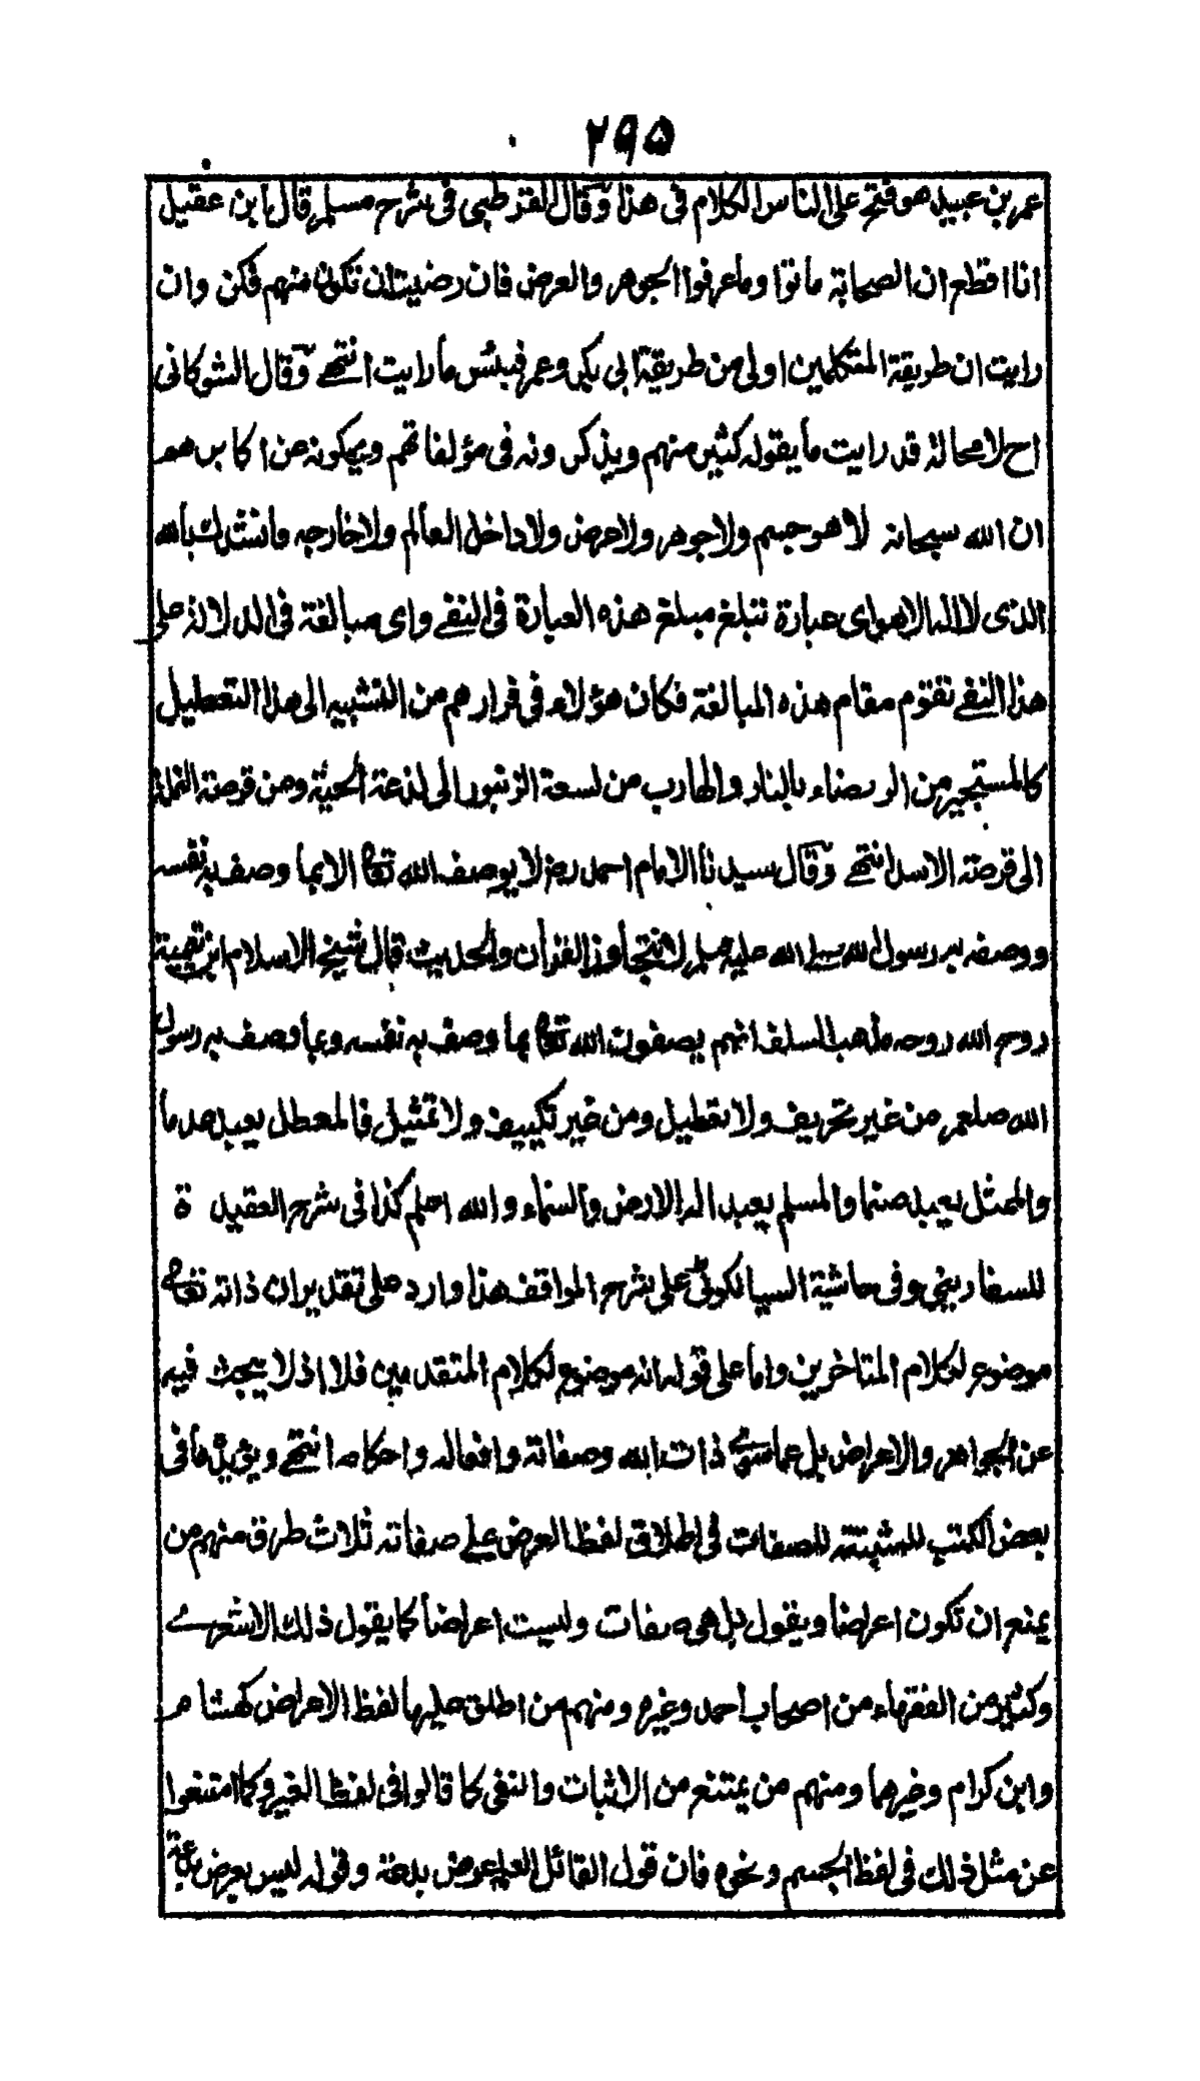 ٢٩٥
عمر بن عبيد هو فتح على الناس الكلام فى هذا وقال القرطبى فى شرح مسلم قال ابن عقيل
انا اقطع ان الصحابة ماتوا وما عرفوا الجوهر والعرض فان رضيت ان تكون منهم فكن وان
رايت ان طريقة المتكلمين اولى من طريقة ابى بكر وعمر فبئس ما رايت انتهى وقال الشوكانى
اح لا محالة قد رايت ما يقوله كثير منهم ويذكرونه فى مؤلفاتهم ويحكونه عن اكابرهم
ان الله سبحانه لا هو جسم ولا جوهر ولا عرض ولا داخل العالم ولا خارجه فانشدك بالله
الذى لا اله الا هو اى عبارة تبلغ مبلغ هذه العبارة فى النفى واى مبالغة فى الدلالة على
هذا النفى تقوم مقام هذه المبالغة فكان هؤلاء فى فرارهم من التشبيه الى هذا التعطيل
كالمستجير من الرمضاء بالنار والهارب من لسعة الزنبور الى لدغة الحية ومن قرصة النملة
الى قرصة الاسد انتهى وقال سيدنا الامام احمد رضـ لا يوصف الله تعالى الا بما وصف به نفسه
ووصفه به رسول الله صلى الله عليه سلم لا نتجاوز القرآن والحديث قال شيخ الاسلام ابن تيمية
روح الله روحه مذهب السلف انهم يصفون الله تعالى بما وصف به نفسه وبما وصف به رسول
الله صلعم من غير تحريف ولا تعطيل ومن غير تكييف ولا تمثيل فالمعطل يعبد عدما
والممثل يعبد صنما والمسلم يعبد اله الارض والسماء والله اعلم كذا فى شرح العقيد ة
للسفارينى وفى حاشية السيالكوتى على شرح المواقف هذا وارد على تقدير ان ذاته تعالى
موضوع لكلام المتاخرين واما على قوله انه موضوع لكلام المتقدمين فلا اذ لا يبحث فيه
عن الجواهر والاعراض بل عما سوى ذات الله وصفاته وافعاله واحكامه انتهى ويؤيده ما فى
بعض الكتب للمثبتة للصفات فى اطلاق لفظ العرض على صفاته ثلاث طرق منهم من
يمنع ان تكون اعراضا ويقول بل هى صفات وليست اعراضا كما يقول ذلك الاشعرى
وكثير من الفقهاء من اصحاب احمد وغيره ومنهم من اطلق عليها لفظ الاعراض كهشام
وابن كرام وغيرهما ومنهم من يمتنع من الاثبات والنفى كما قالوا فى لفظ الغير وكما امتنعوا
عن مثل ذلك فى لفظ الجسم ونحوه فان قول القائل العلم عرض بدعة وقوله ليس بعرض بدعة